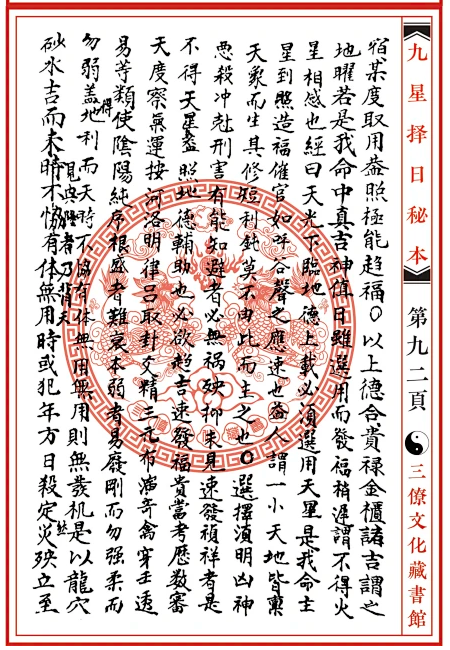 宿某度取用葢照極能趋福〇以上德合貴禄金櫃諸吉謂之
地曜若是我命中真吉神值日雖選用而發福稍遲謂不得火
星相感也經曰天光下臨地德上載必須選用天星是我命主
星到照造福催官如呼谷聲之應速也葢人謂一小天地皆稟
天象而生其修臨利鈍莫不由此而主之也〇選擇須明凶神
恶殺冲尅刑害有能知避者必無禍殃抑朱見速發禎祥者是
不得天星葢照地德輔助也必欲趋吉速發福貴當考歷数審
天度察氣運按河洛明律吕取卦爻精三元布演奇禽穿壬透
易等類使陰陽純序根盛者難衰本弱者易發剛而勿强柔而
勿弱盖得地利而天時不協有体無用無用則無發机是以龍穴
砂水吉而未時不恊有体無用時或犯年方日殺定然灾殃立至
見兴隆者乃背天
九星择日秘本
第九二頁
三僚文化藏書館